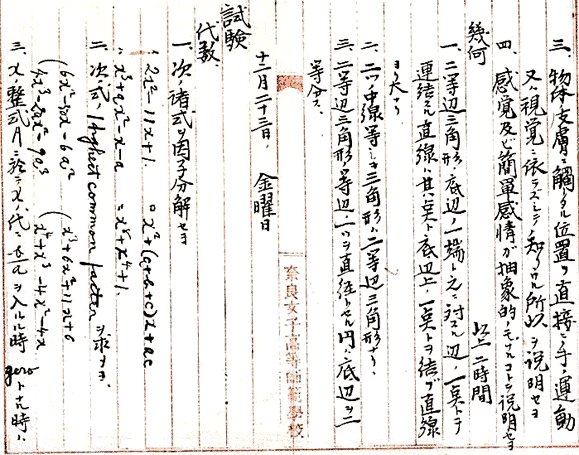 三、物体皮膚ニ觸レタル位置ヲ直接ニ手ノ運動
又ハ視覚ニ依ラズシテ知リ得ル所以ヲ説明セヨ
四、感覚及ビ簡單感情ガ抽象的ノモノナルコトヲ説明セヨ
以上二時間
幾何
一、二等辺三角形ノ底辺ノ一端ト之ニ対スル辺ノ一点トヲ
連結スル直線ハ其点ト底辺上ノ一点トヲ結ブ直線
ヨリ大ナリ
二、二ツノ中線等シキ三角形ハ二等辺三角形ナリ、
三、二等辺三角形ノ等辺ノ一ツヲ直径トセル円ハ底辺ヲ二
等分ス、
十二月二十三日、 金曜日
試験
代数
一、次ノ諸式ヲ因子分解セヨ
2x²-11x+1. x²+(a+b+c)x+ac
x³+ax²-x-a x⁸+x⁴+1.
二、次ノ式ノ Highest common factor ヲ求メヨ.
x³+6x²+11x+6
x⁴+x³-4x²-4x
三、xノ整式Mニ於テxノ代リニaヲ入ルル時 zero トナル時ハ
奈良女子高等師範學校